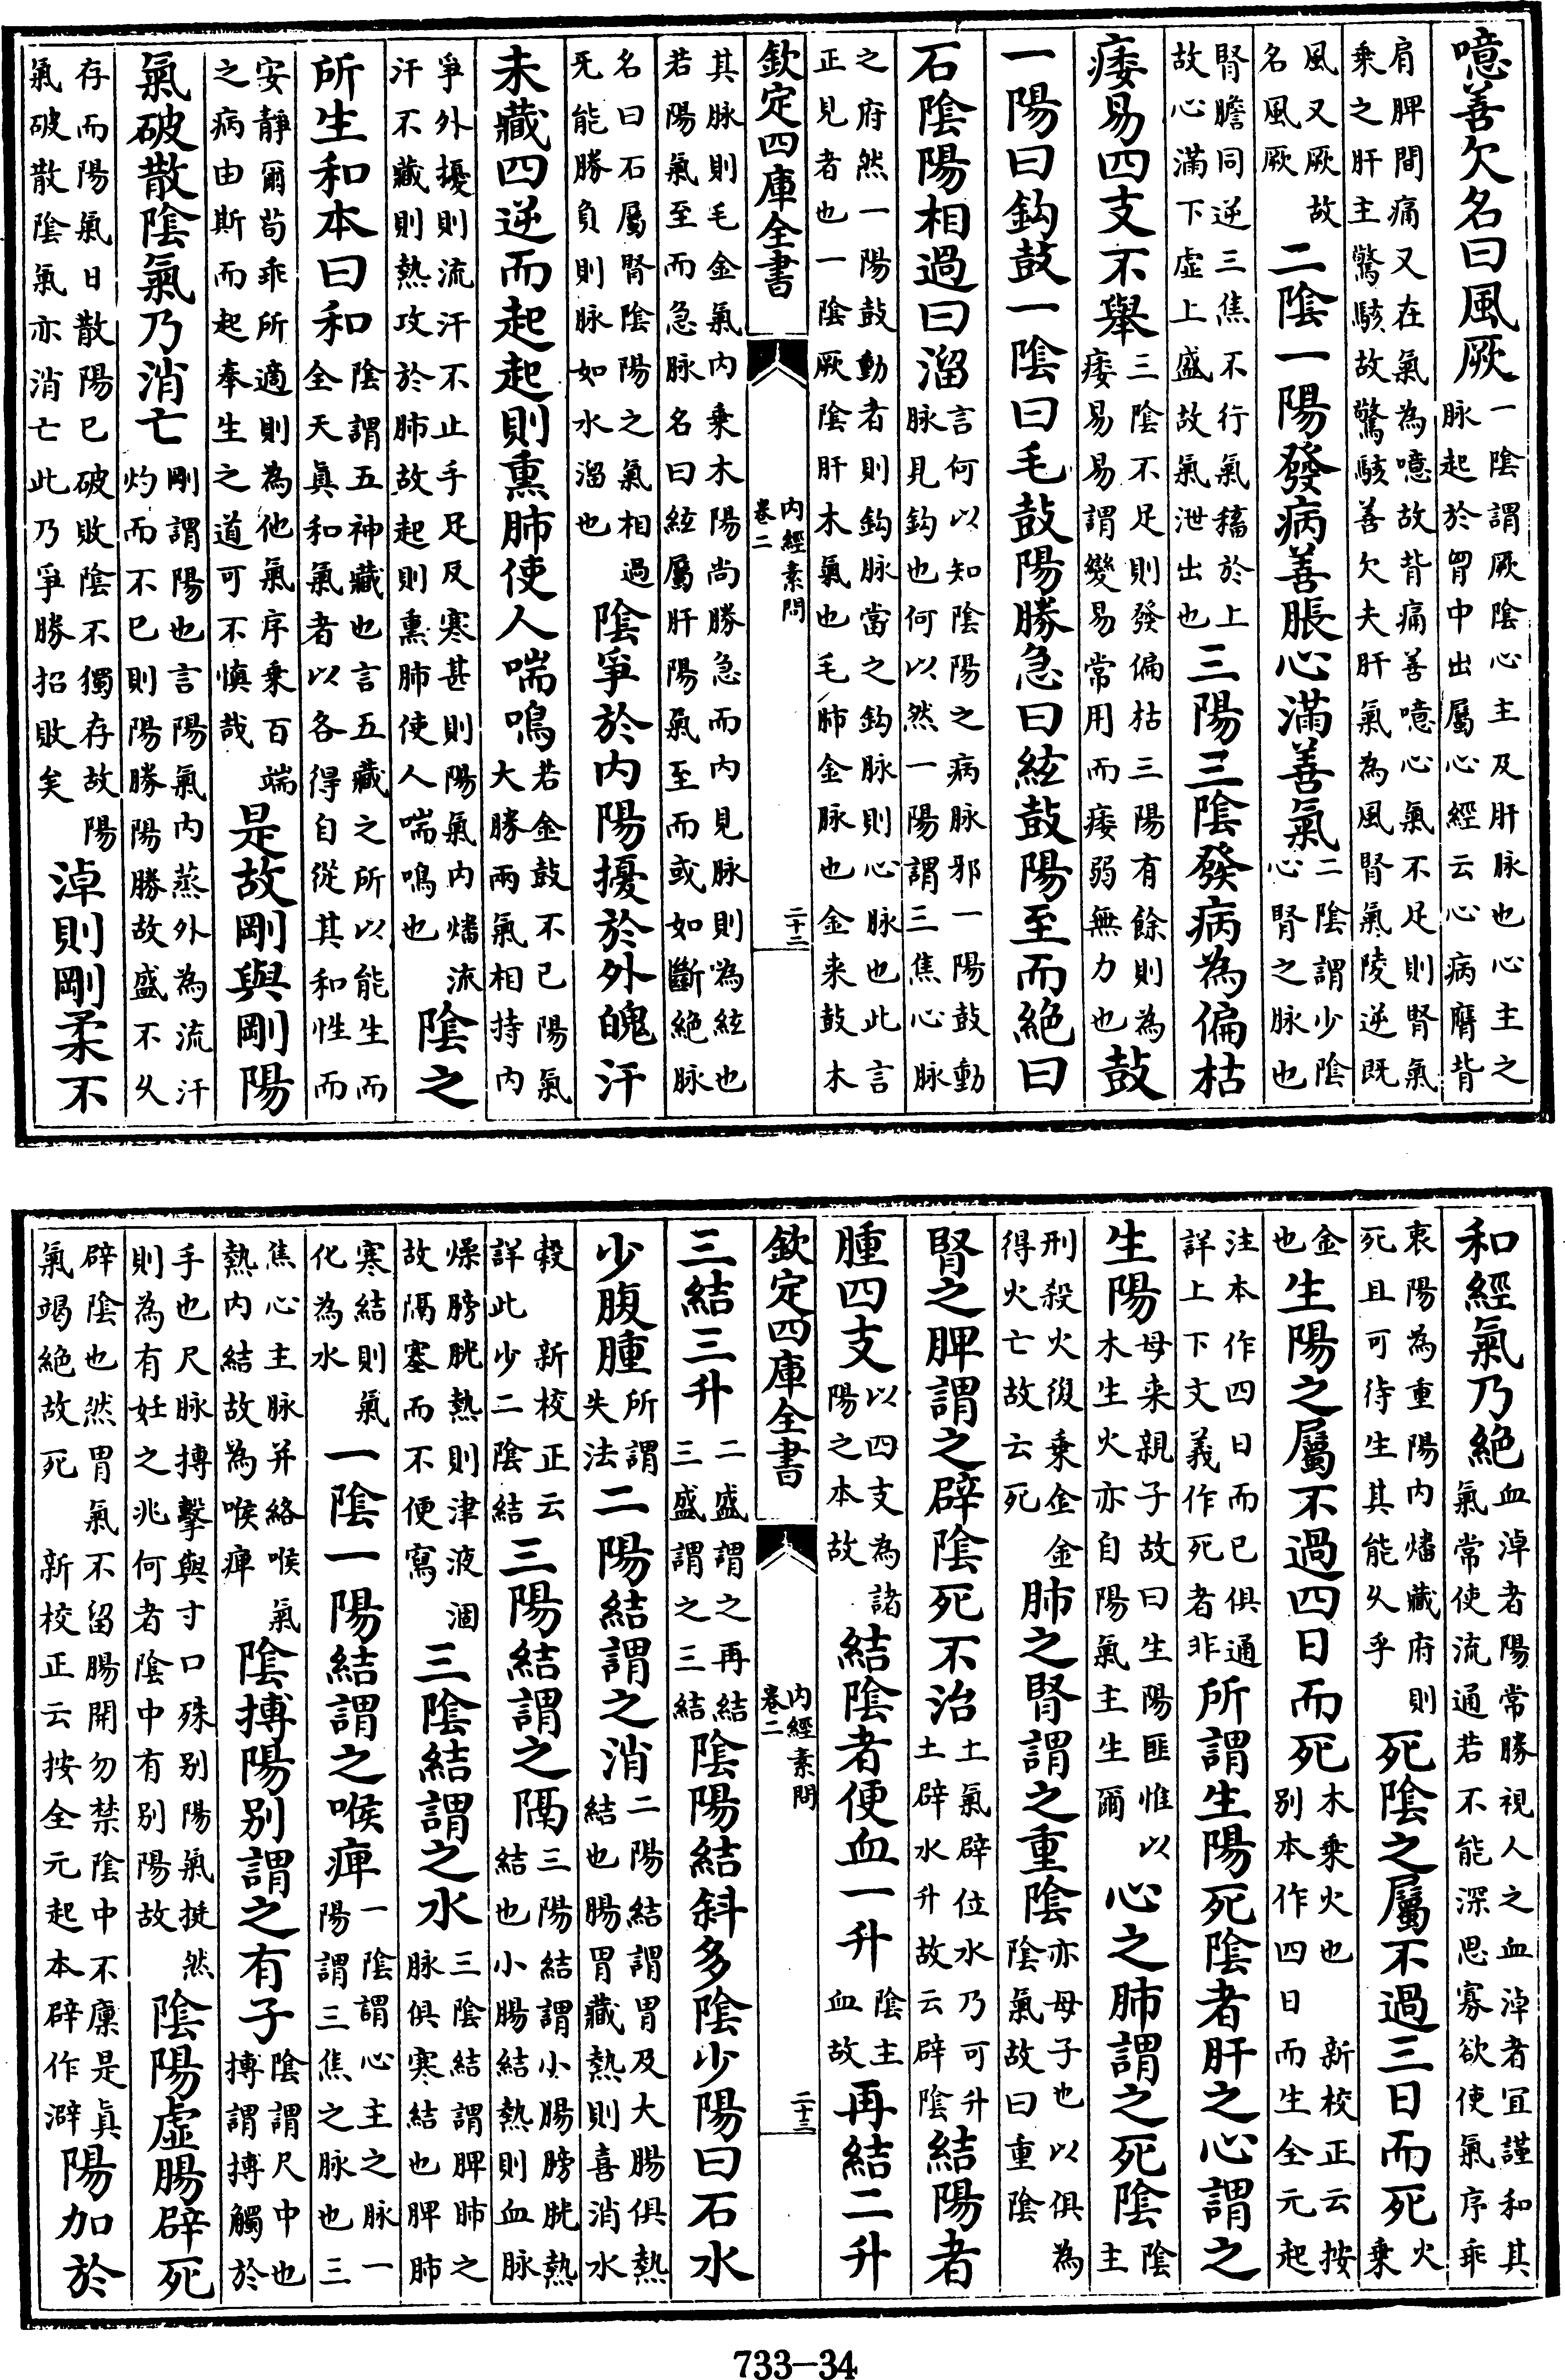 噫善欠名曰風厥一陰謂厥陰心主及肝脉也心主之脉起於胷中出屬心經云心病膺背
肩脾間痛又在氣為噫故背痛善噫心氣不足則腎氣乘之肝主驚駭故驚駭善欠夫肝氣為風腎氣陵逆既
風又厥故名風厥二陰一陽發病善脹心滿善氣二陰謂少陰心腎之脉也
腎膽同逆三焦不行氣稸於上故心滿下虛上盛故氣泄出也三陽三陰發病為偏枯
痿易四支不舉三陰不足則發偏枯三陽有餘則為痿易易謂變易常用而痿弱無力也鼓
一陽曰鈎鼓一陰曰毛鼓陽勝急曰絃鼓陽至而絕曰
石陰陽相過曰溜言何以知陰陽之病脉邪一陽鼓動脉見鈎也何以然一陽謂三焦心脉
之府然一陽鼓動者則鈎脉當之鈎脉則心脉也此言正見者也一陰厥陰肝木氣也毛肺金脉也金来鼓木
欽定四庫全書 內經素問卷二 二十二
其脉則毛金氣內乘木陽尚勝急而內見脉則為絃也若陽氣至而急脉名曰絃屬肝陽氣至而或如斷絕脉
名曰石屬腎陰陽之氣相過无能勝負則脉如水溜也陰爭於內陽擾於外魄汗
未藏四逆而起起則熏肺使人喘鳴若金鼓不已陽氣大勝兩氣相持內
爭外擾則流汗不止手足反寒甚則陽氣內燔流汗不藏則熱攻於肺故起則熏肺使人喘鳴也陰之
所生和本曰和陰謂五神藏也言五藏之所以能生而全天真和氣者以各得自從其和性而
安靜爾苟乖所適則為他氣序乘百端之病由斯而起奉生之道可不慎哉是故剛與剛陽
氣破散陰氣乃消亡剛謂陽也言陽氣內蒸外為流汗灼而不已則陽勝陽勝故盛不久
存而陽氣日散陽已破敗陰不獨存故陽氣破散陰氣亦消亡此乃爭勝招敗矣淖則剛柔不
和經氣乃絕血淖者陽常勝視人之血淖者宜謹和其氣常使流通若不能深思寡欲使氣序乖
衷陽為重陽內燔藏府則死且可待生其能久乎死陰之屬不過三日而死火乘
金也生陽之屬不過四日而死木乘火也 新校正云按別本作四日而生全元起
注本作四日而已俱通詳上下文義作死者非所謂生陽死陰者肝之心謂之
生陽母来親子故曰生陽匪惟以木生火亦自陽氣主生爾心之肺謂之死陰陰主
刑殺火復乘金金得火亡故云死肺之腎謂之重陰亦母子也以俱為陰氣故曰重陰
腎之脾謂之辟陰死不治土氣辟位水乃可升土辟水升故云辟陰結陽者
腫四支以四支為諸陽之本故結陰者便血一升陰主血故再結二升
欽定四庫全書 內經素問卷二 二十三
三結三升二盛謂之再結三盛謂之三結陰陽結斜多陰少陽曰石水
少腹腫所謂失法二陽結謂之消二陽結謂胃及大腸俱熱結也腸胃藏熱則喜消水
穀 新校正云詳此少二陰結三陽結謂之隔三陽結謂小腸膀胱熱結也小腸結熱則血脉
燥膀胱熱則津液涸故隔塞而不便寫三陰結謂之水三陰結謂脾肺之脉俱寒結也脾肺
寒結則氣化為水一陰一陽結謂之喉痺一陰謂心主之脉一陽謂三焦之脉也三
焦心主脉并絡喉氣熱內結故為喉痺陰搏陽別謂之有子陰謂尺中也搏謂搏觸於
手也尺脉搏擊與寸口殊別陽氣挺然則為有妊之兆何者陰中有別陽故陰陽虛腸辟死
辟陰也然胃氣不留腸開勿禁陰中不廩是真氣竭絕故死 新校正云按全元起本辟作澼陽加於
733-34